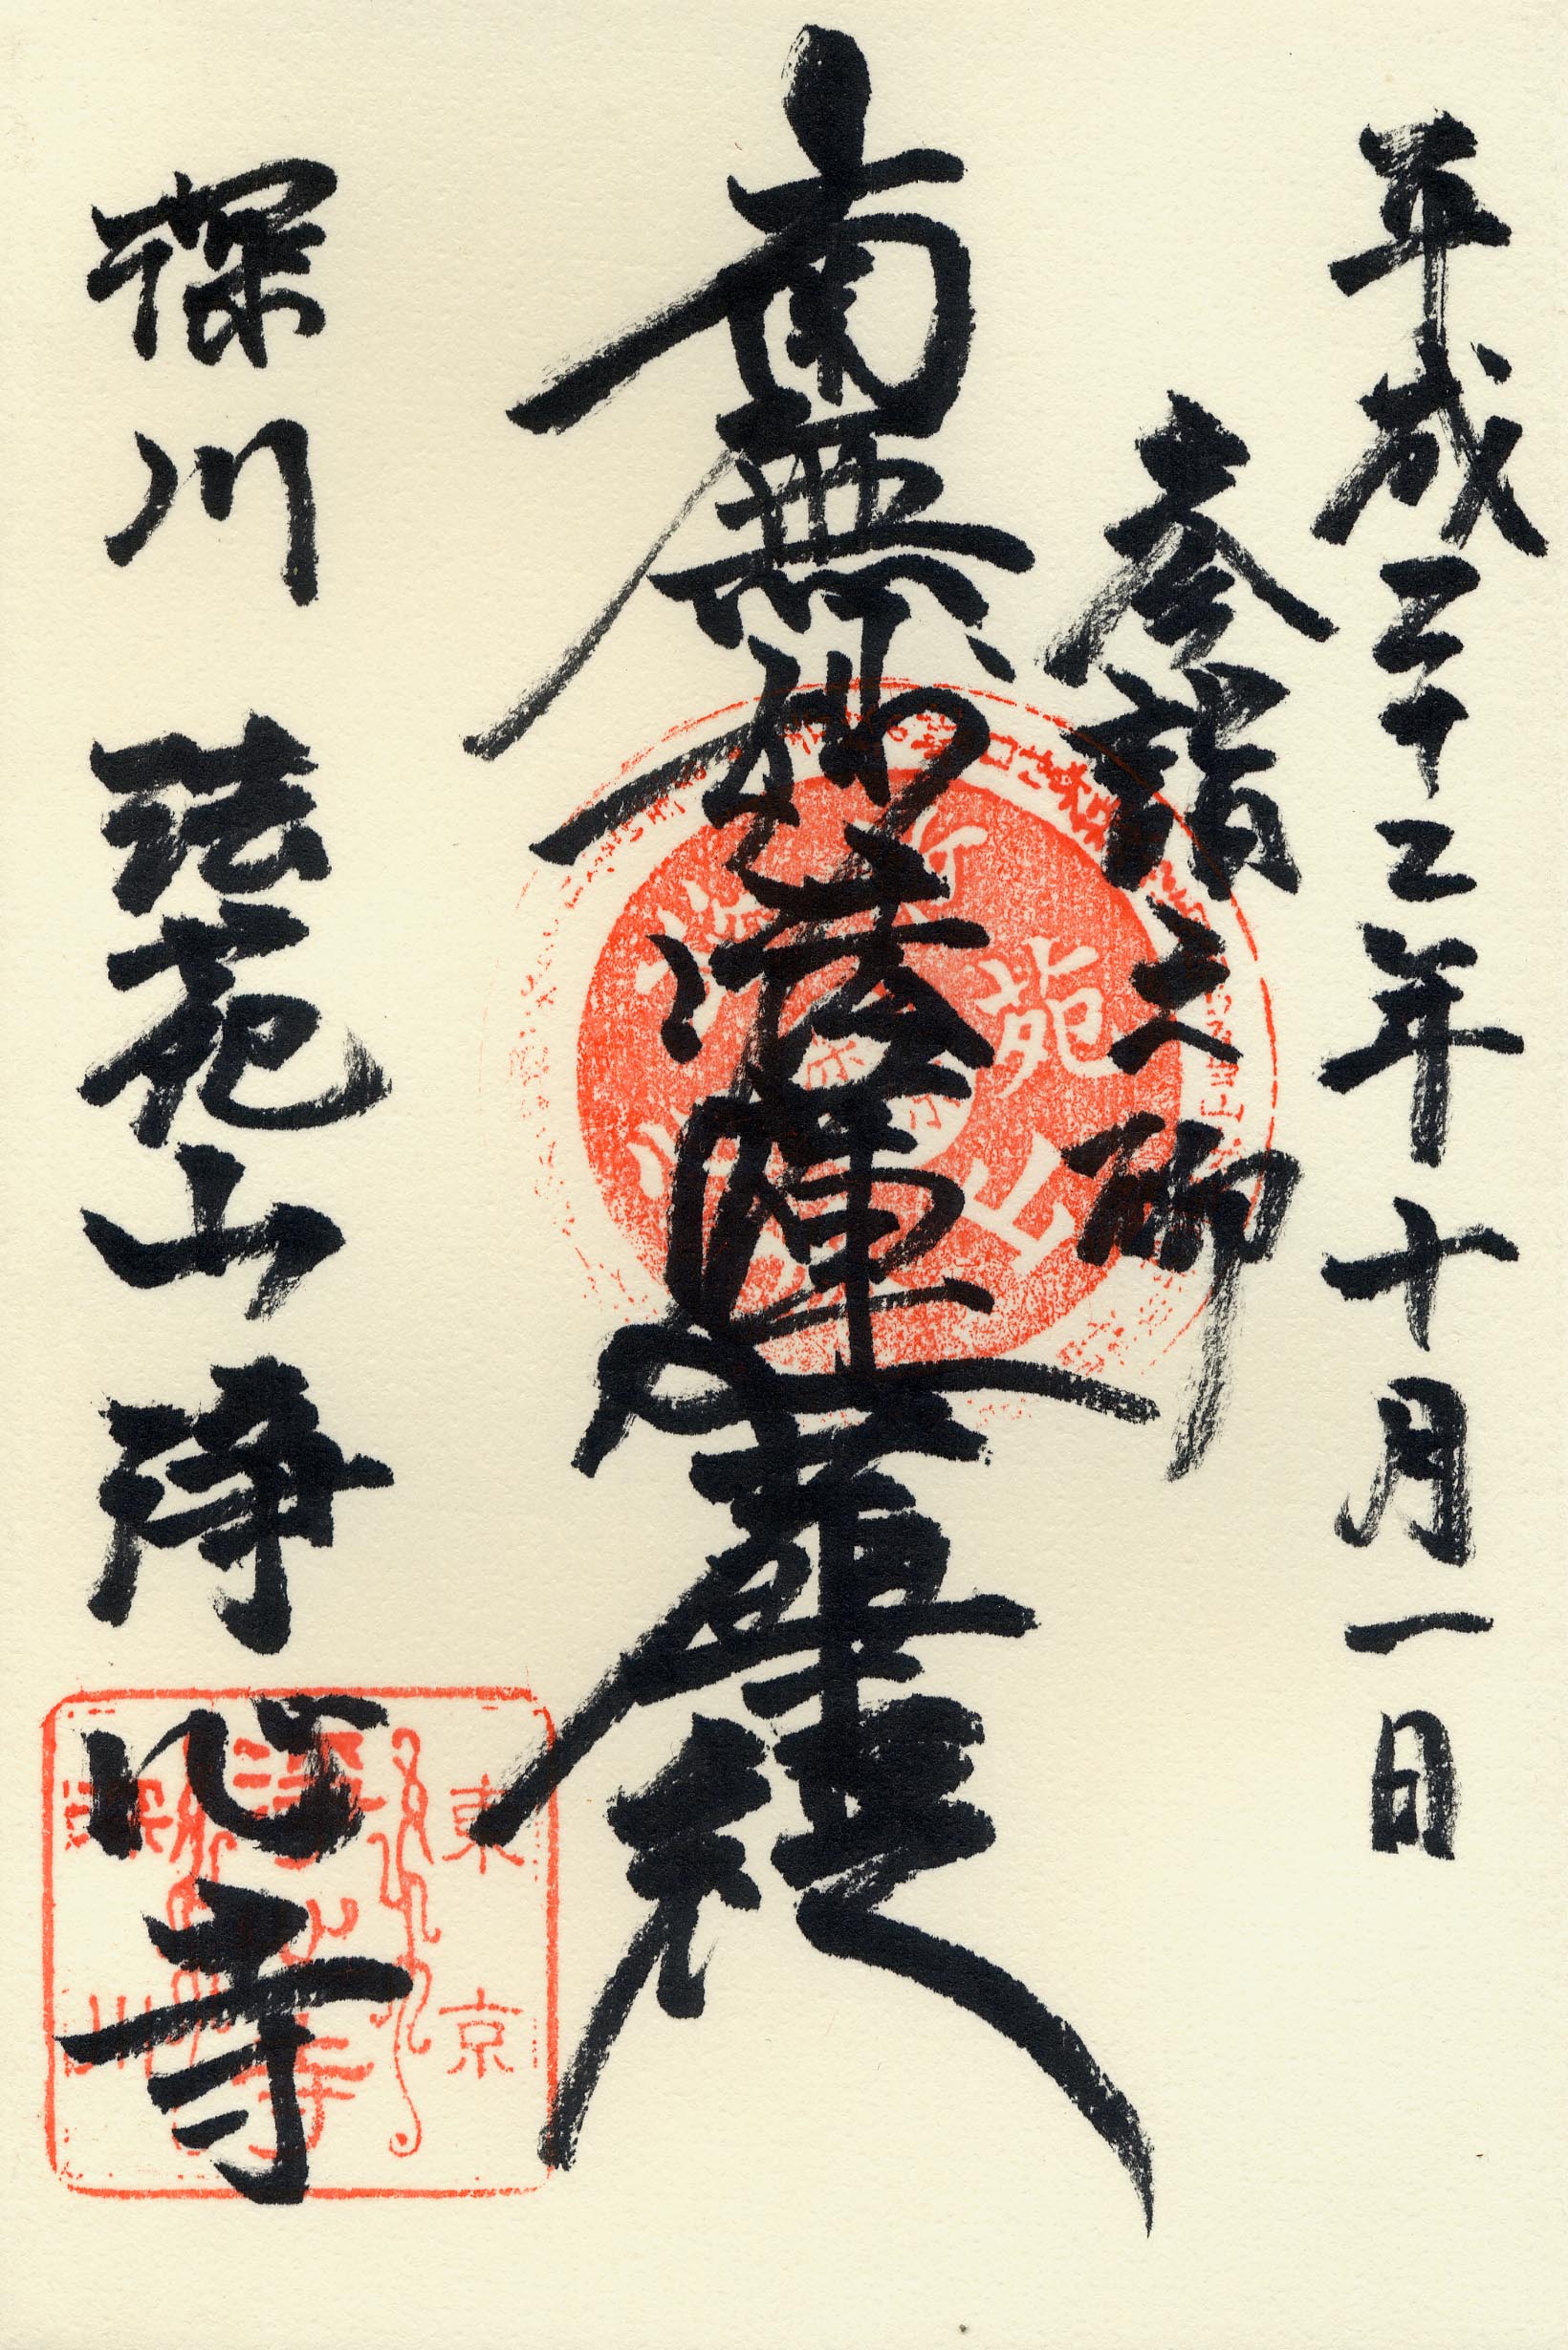 平成二十二年十月一日
参詣之砌
南無妙法蓮華経
深川 法苑山 浄心寺
苑
山
東京
深川
浄心寺